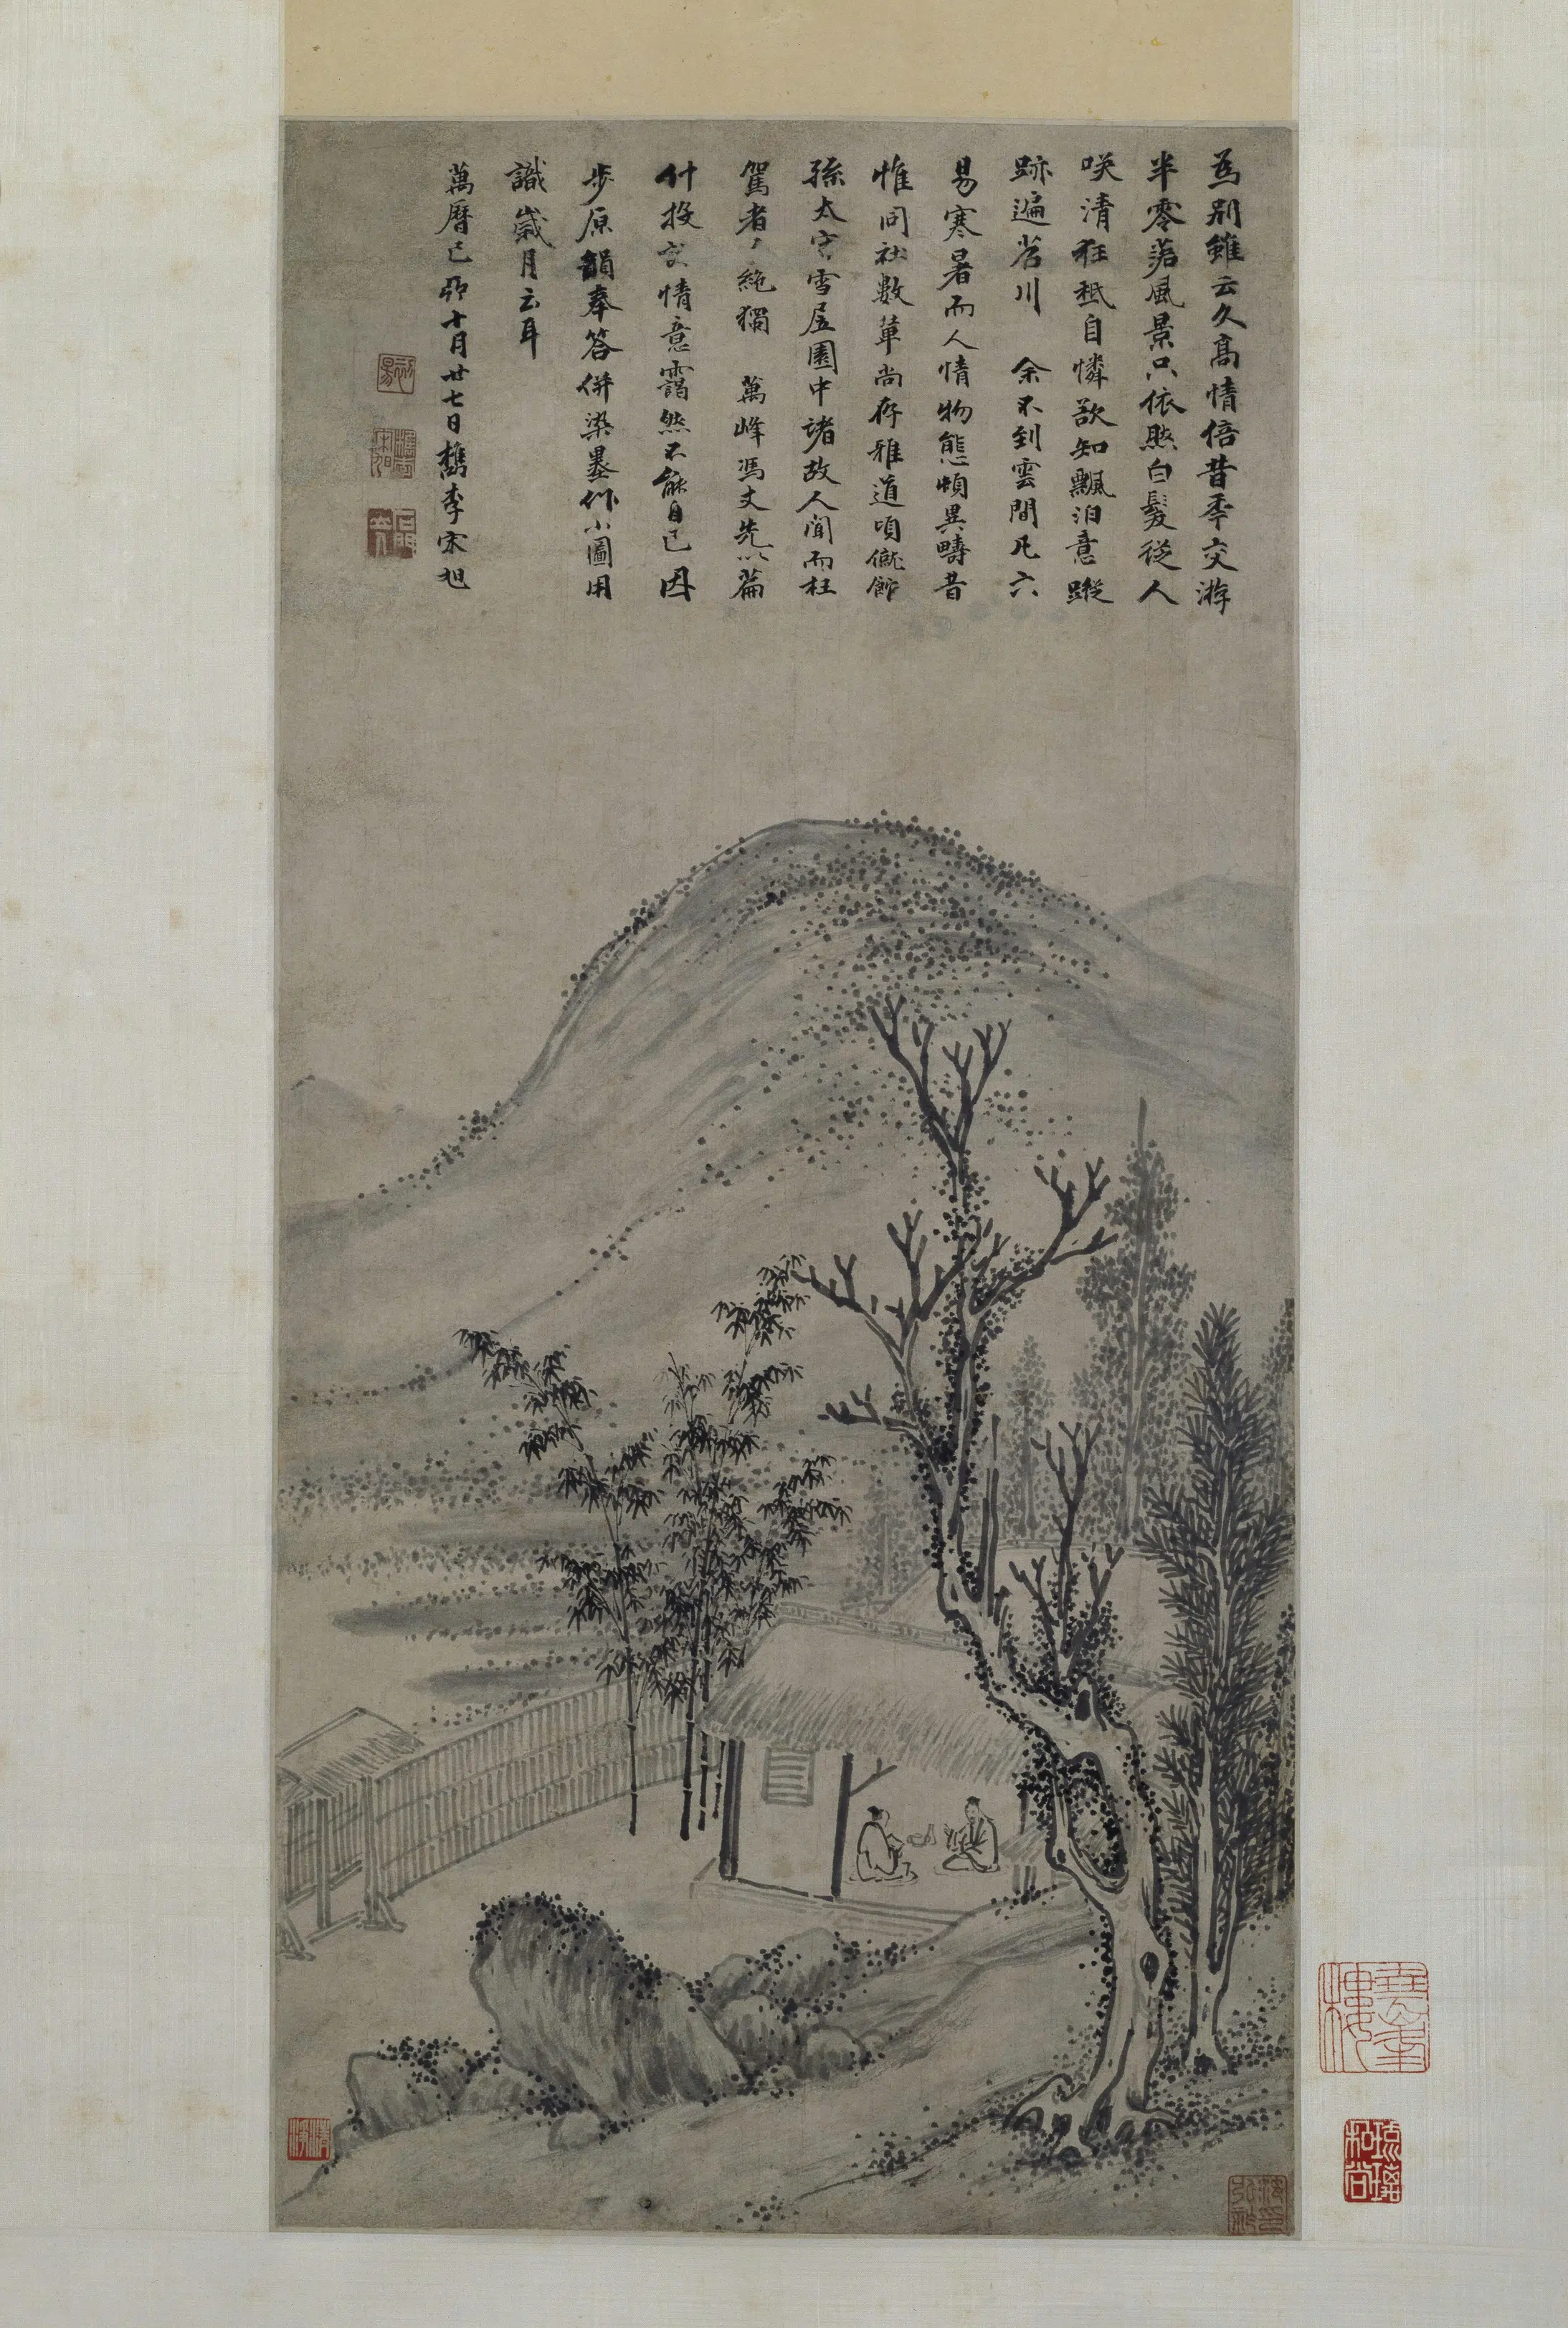 為別雖云久高情倍昔年交游
半零落風景只依然白髮從人
咲清狂秖自憐欲知飄泊意蹤
跡遍苕川 余不到雲間凡六
易寒暑而人情物態頓異疇昔
惟同社數輩尚存雅道頃僦館
孫太守雪居園中諸故人聞而枉
駕者〻絶獨 萬峰馮丈先以篇
什投文情意靄然不能自已因
步原韻奉答併染墨作小圖用
識歲月云耳
萬曆己卯十月廿七日檇李宋旭
琉璃
和尚